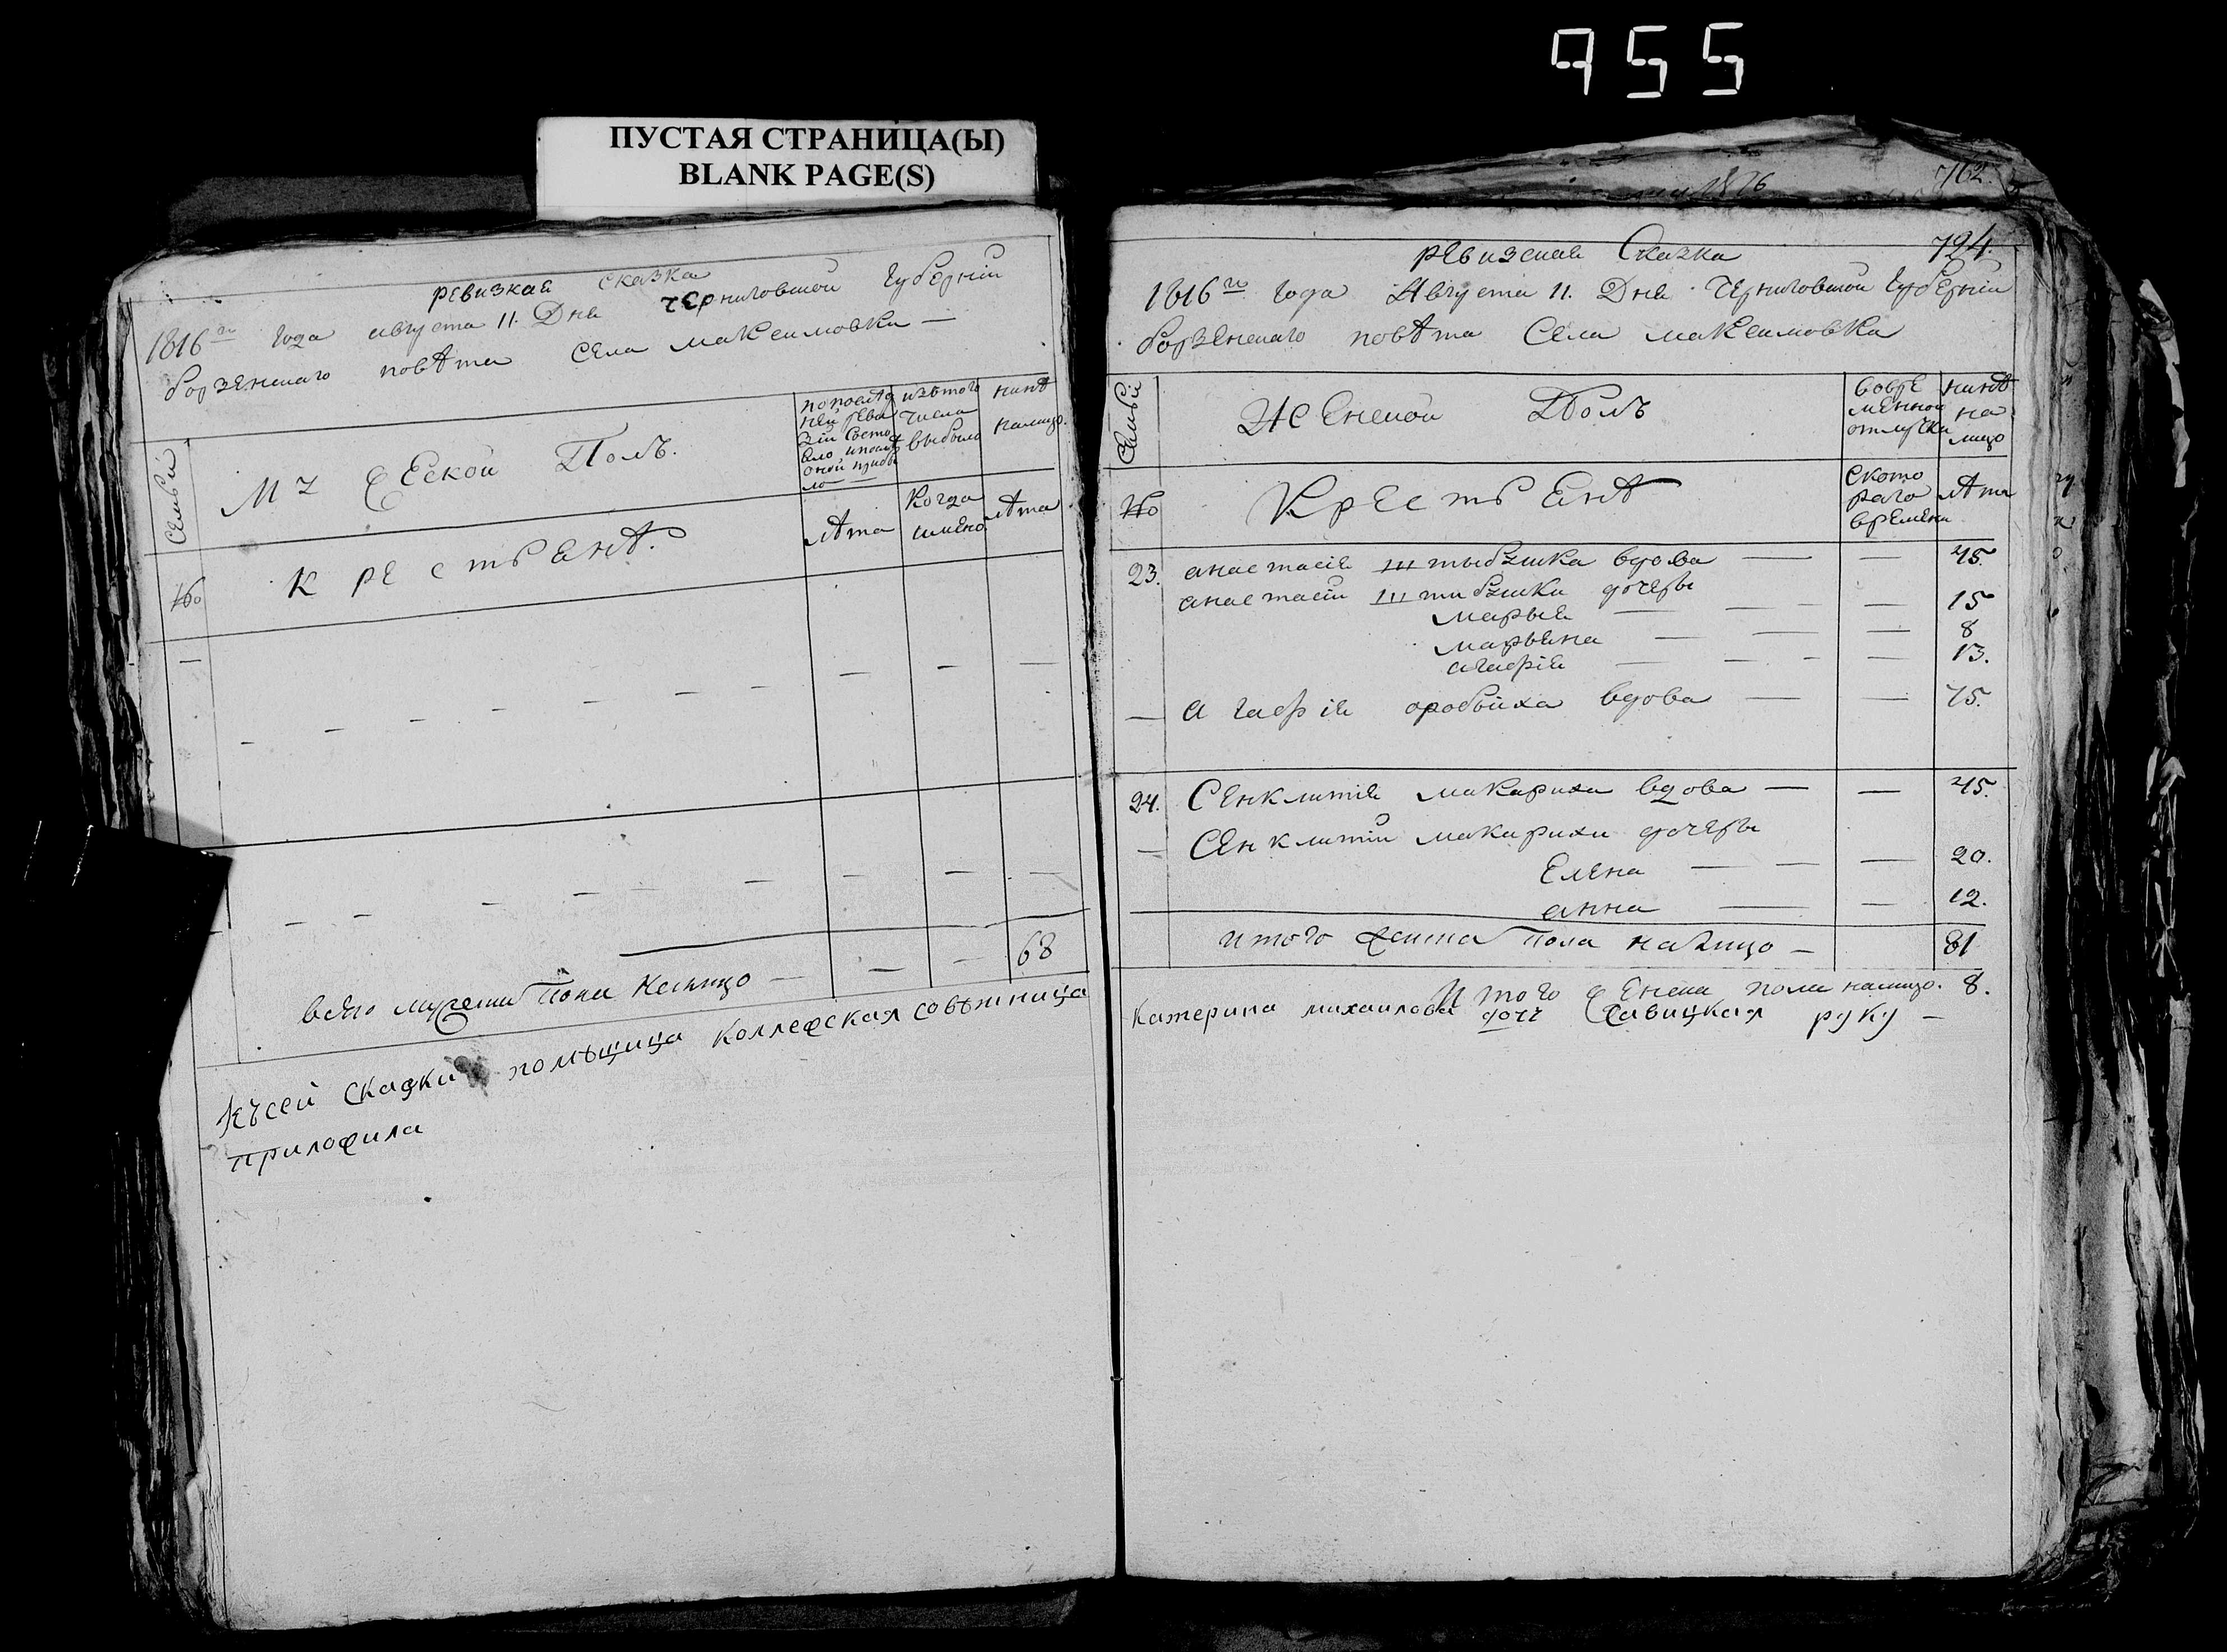 955
ПУСТАЯ СТРАНИЦА(Ы)
BLANK PAGE(S)
ревизкая сказка
1816го года августа 11. Дня черниговской губерніи
борзенского повѣта села максимовки —
Семьи
мужеской Полъ.
по последней ревизіи состояло и после оной прибыло
изътого числа выбыло
нинѣ налицо.
№
крестьянѣ.
лѣта
когда имено
лѣта
всего мужеска пола налицо — — — 68
късей скаски помѣщица коллежская совѣтница
приложила
762.
724.
ревизская Сказка
1816го года Августа 11. Дня Черниговской губерніи
борзенского повѣта Села максимовки
Семьи
Женской Полъ
вовременной отлучки
нинѣ на лицо
№
Крестьянѣ
скоторого времени
лѣта
23. анастасія штыбышка вдова — — 45.
анастасіи штибышки дочеры
марыя — — — 15
марьяна — — — 8
агафія — — — 13.
— агафія оробьиха вдова — — 75.
24. Сенклитія макариха вдова — — 45.
— Сенклитіи макарихи дочеры
Елена — — — 20.
анна — — 12.
итого женска пола налицо — 81
Итого женска пола налицо. 8.
катерина михаилова дочь Савицкая руку —